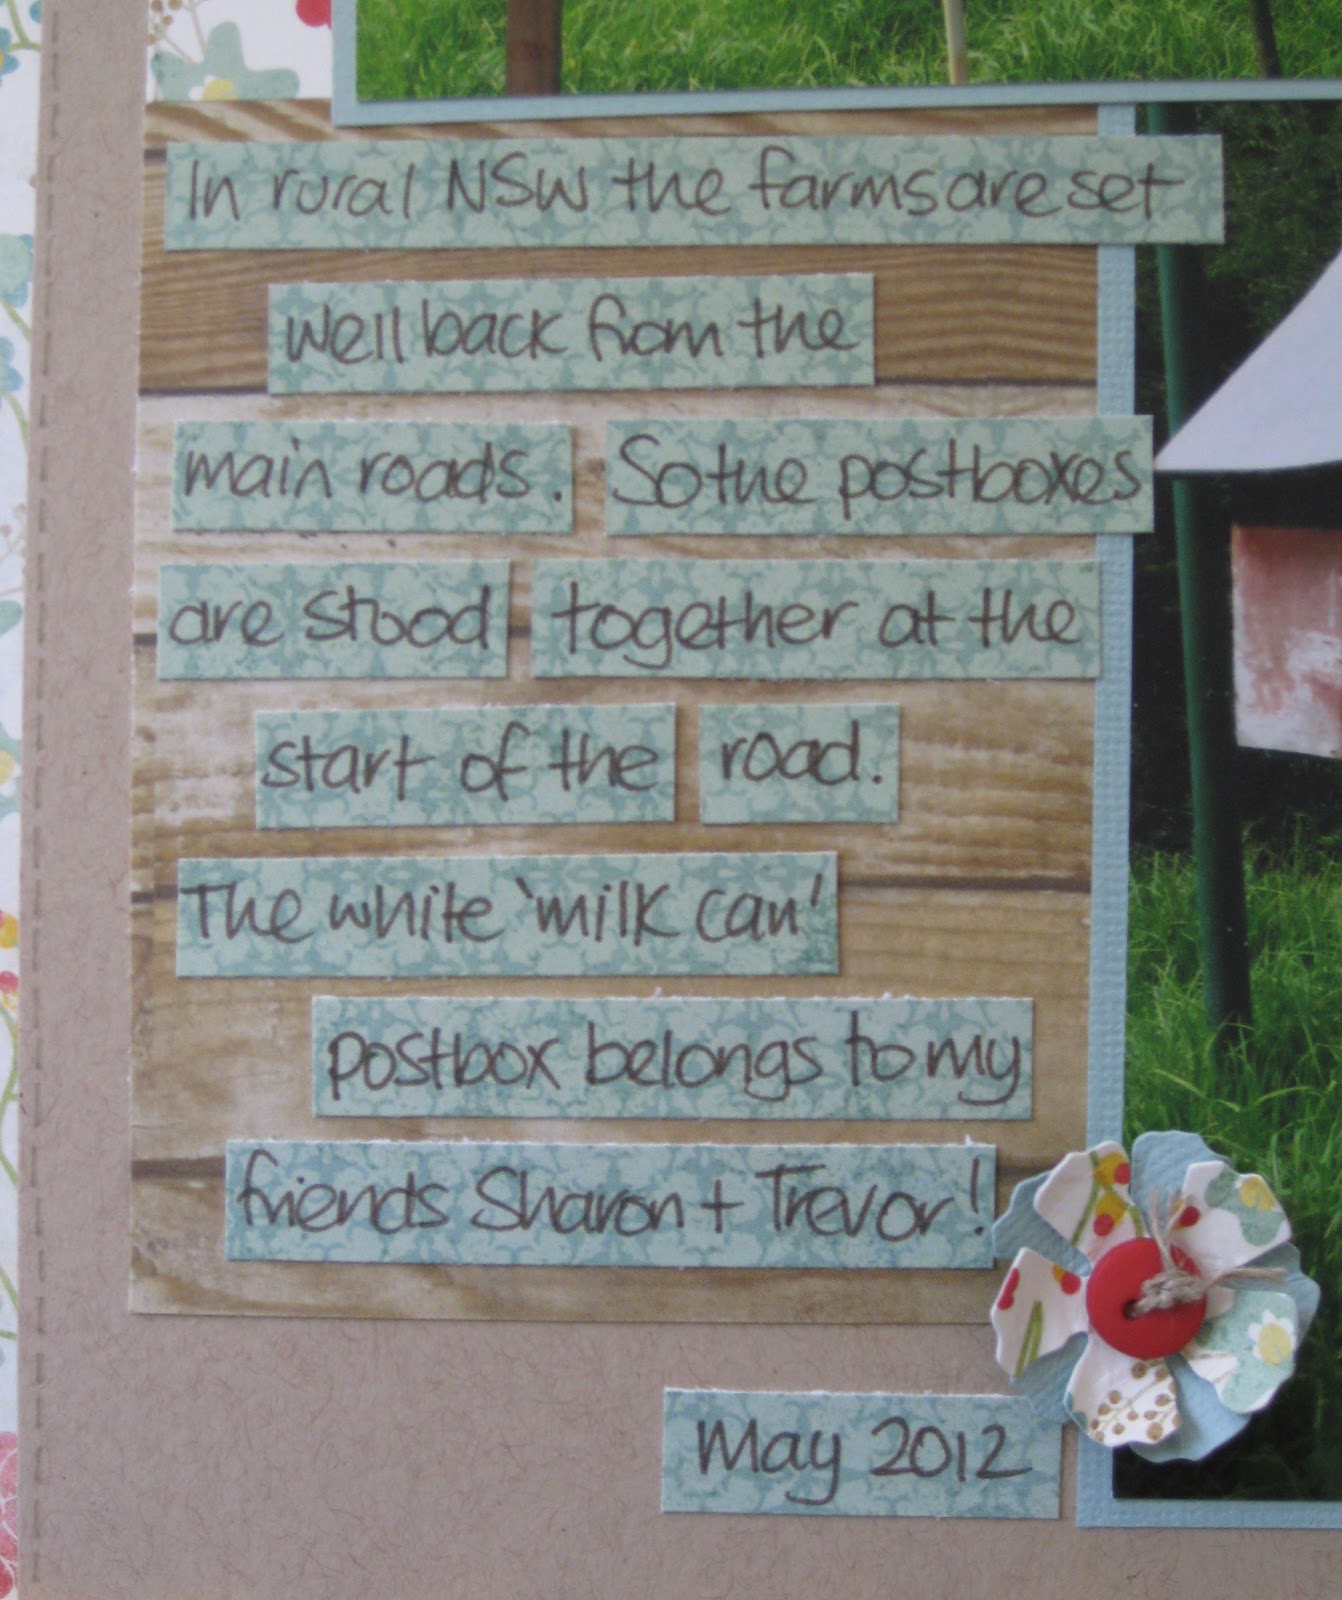 In rural NSW the farms are set
well back from the
main roads. So the postboxes
are stood together at the
start of the road.
The white 'milk can'
postbox belongs to my
friends Sharon + Trevor!
May 2012